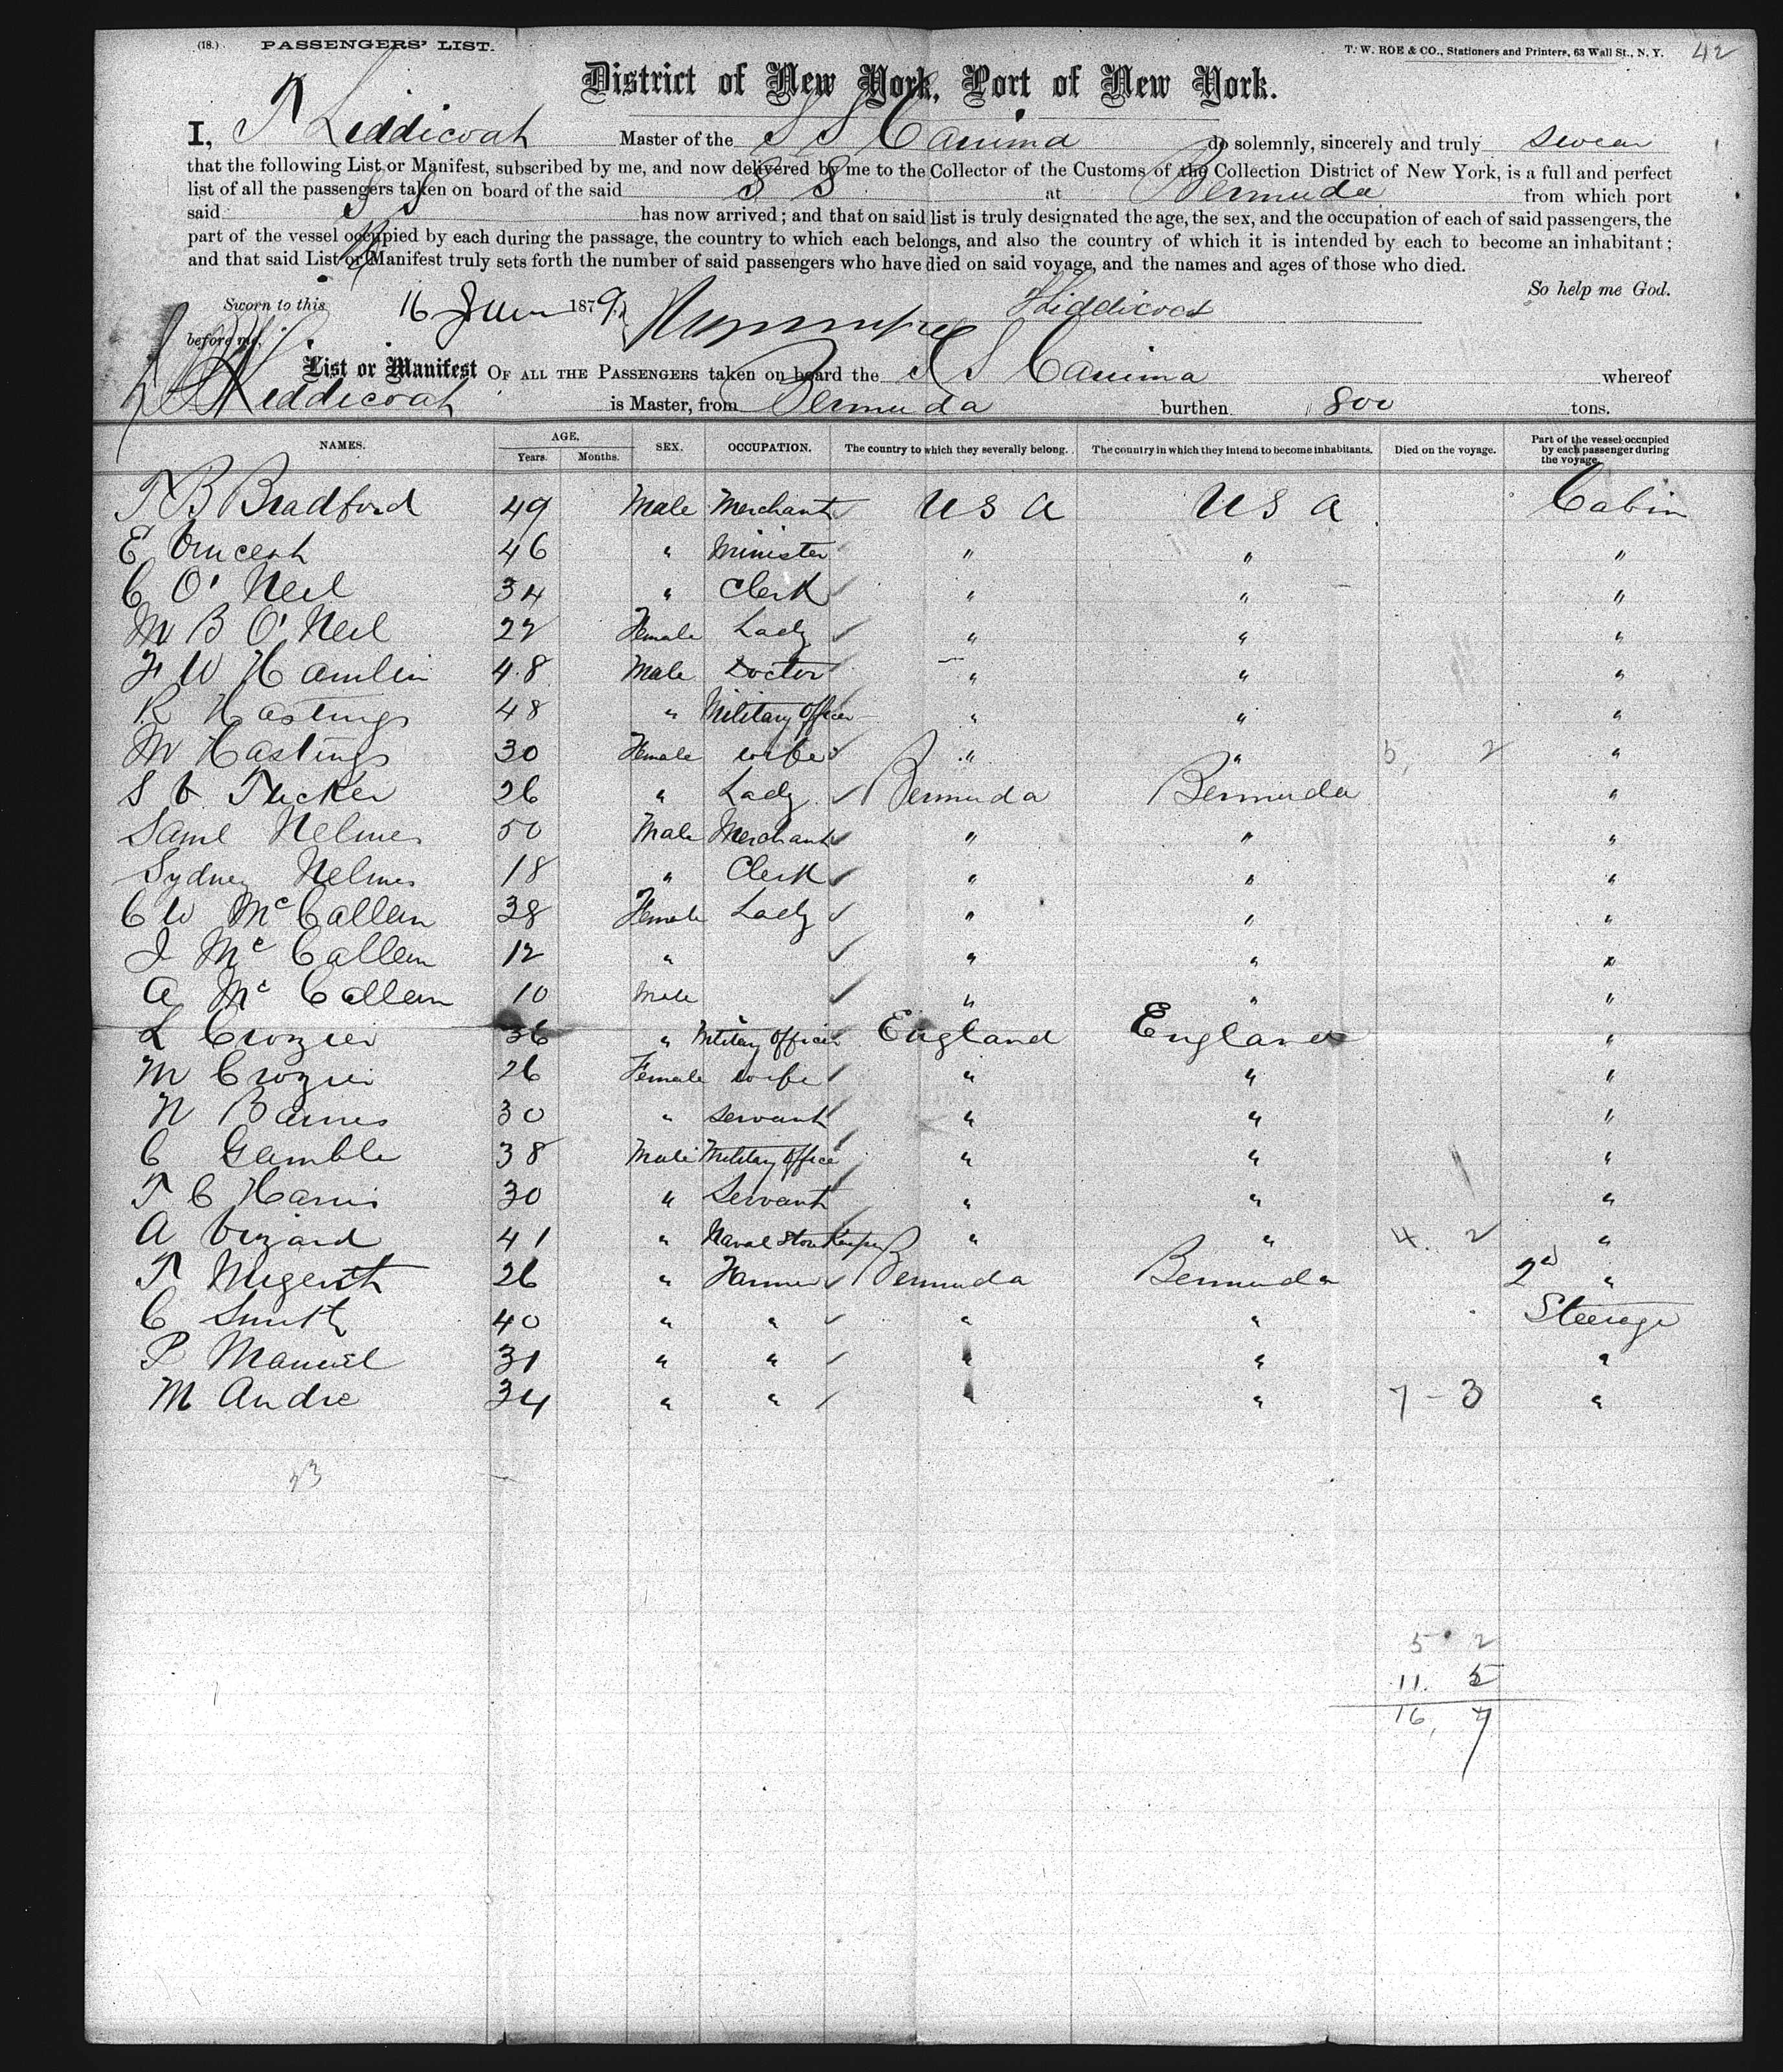 (18.) PASSENGERS' LIST. T. W. ROE & CO., Stationers and Printers, 63 Wall St., N. Y. 42
District of New York, Port of New York.
I, T Liddicoat Master of the S S Canima do solemnly, sincerely and truly swear
that the following List or Manifest, subscribed by me, and now delivered by me to the Collector of the Customs of the Collection District of New York, is a full and perfect
list of all the passengers taken on board of the said S S at Bermuda from which port
said S S has now arrived; and that on said list is truly designated the age, the sex, and the occupation of each of said passengers, the
part of the vessel occupied by each during the passage, the country to which each belongs, and also the country of which it is intended by each to become an inhabitant;
and that said List or Manifest truly sets forth the number of said passengers who have died on said voyage, and the names and ages of those who died.
So help me God.
Sworn to this 16 June 1879 Liddicoat
before me,
List or Manifest OF ALL THE PASSENGERS taken on board the S S Canima whereof
Liddicoat is Master, from Bermuda burthen 800 tons.
NAMES. AGE. Years. Months. SEX. OCCUPATION. The country to which they severally belong. The country in which they intend to become inhabitants. Died on the voyage. Part of the vessel occupied by each passenger during the voyage.
T B Bradford 49 Male Merchant USA USA Cabin
E Vincent 46 " Minister " " "
C O'Neil 34 " Clerk " " "
M B O'Neil 22 Female Lady " " "
F W Hamlin 48 Male Doctor " " "
R Hastings 48 " Military Officer " " "
M Hastings 30 Female wife " " 5, 2 "
S V Tucker 26 " Lady Bermuda Bermuda "
Saml Nelmes 50 Male Merchant " " "
Sydney Nelmes 18 " Clerk " " "
C W McCallan 38 Female Lady " " "
J McCallan 12 " " " "
A McCallan 10 Male " " "
L Crozier 36 " Military Officer England England "
M Crozier 26 Female wife " " "
N Barnes 30 " servant " " "
C Gamble 38 Male Military Office " " "
T C Harris 30 " Servant " " "
A Vizard 41 " Naval Store Keeper " " 4. 2 "
T Nugent 26 " Farmer Bermuda Bermuda 2d "
C Smith 40 " " " " Steerage
P Manuel 31 " " " " "
M Andre 34 " " " " 7 - 3 "
23
5 2
11. 5
16, 7